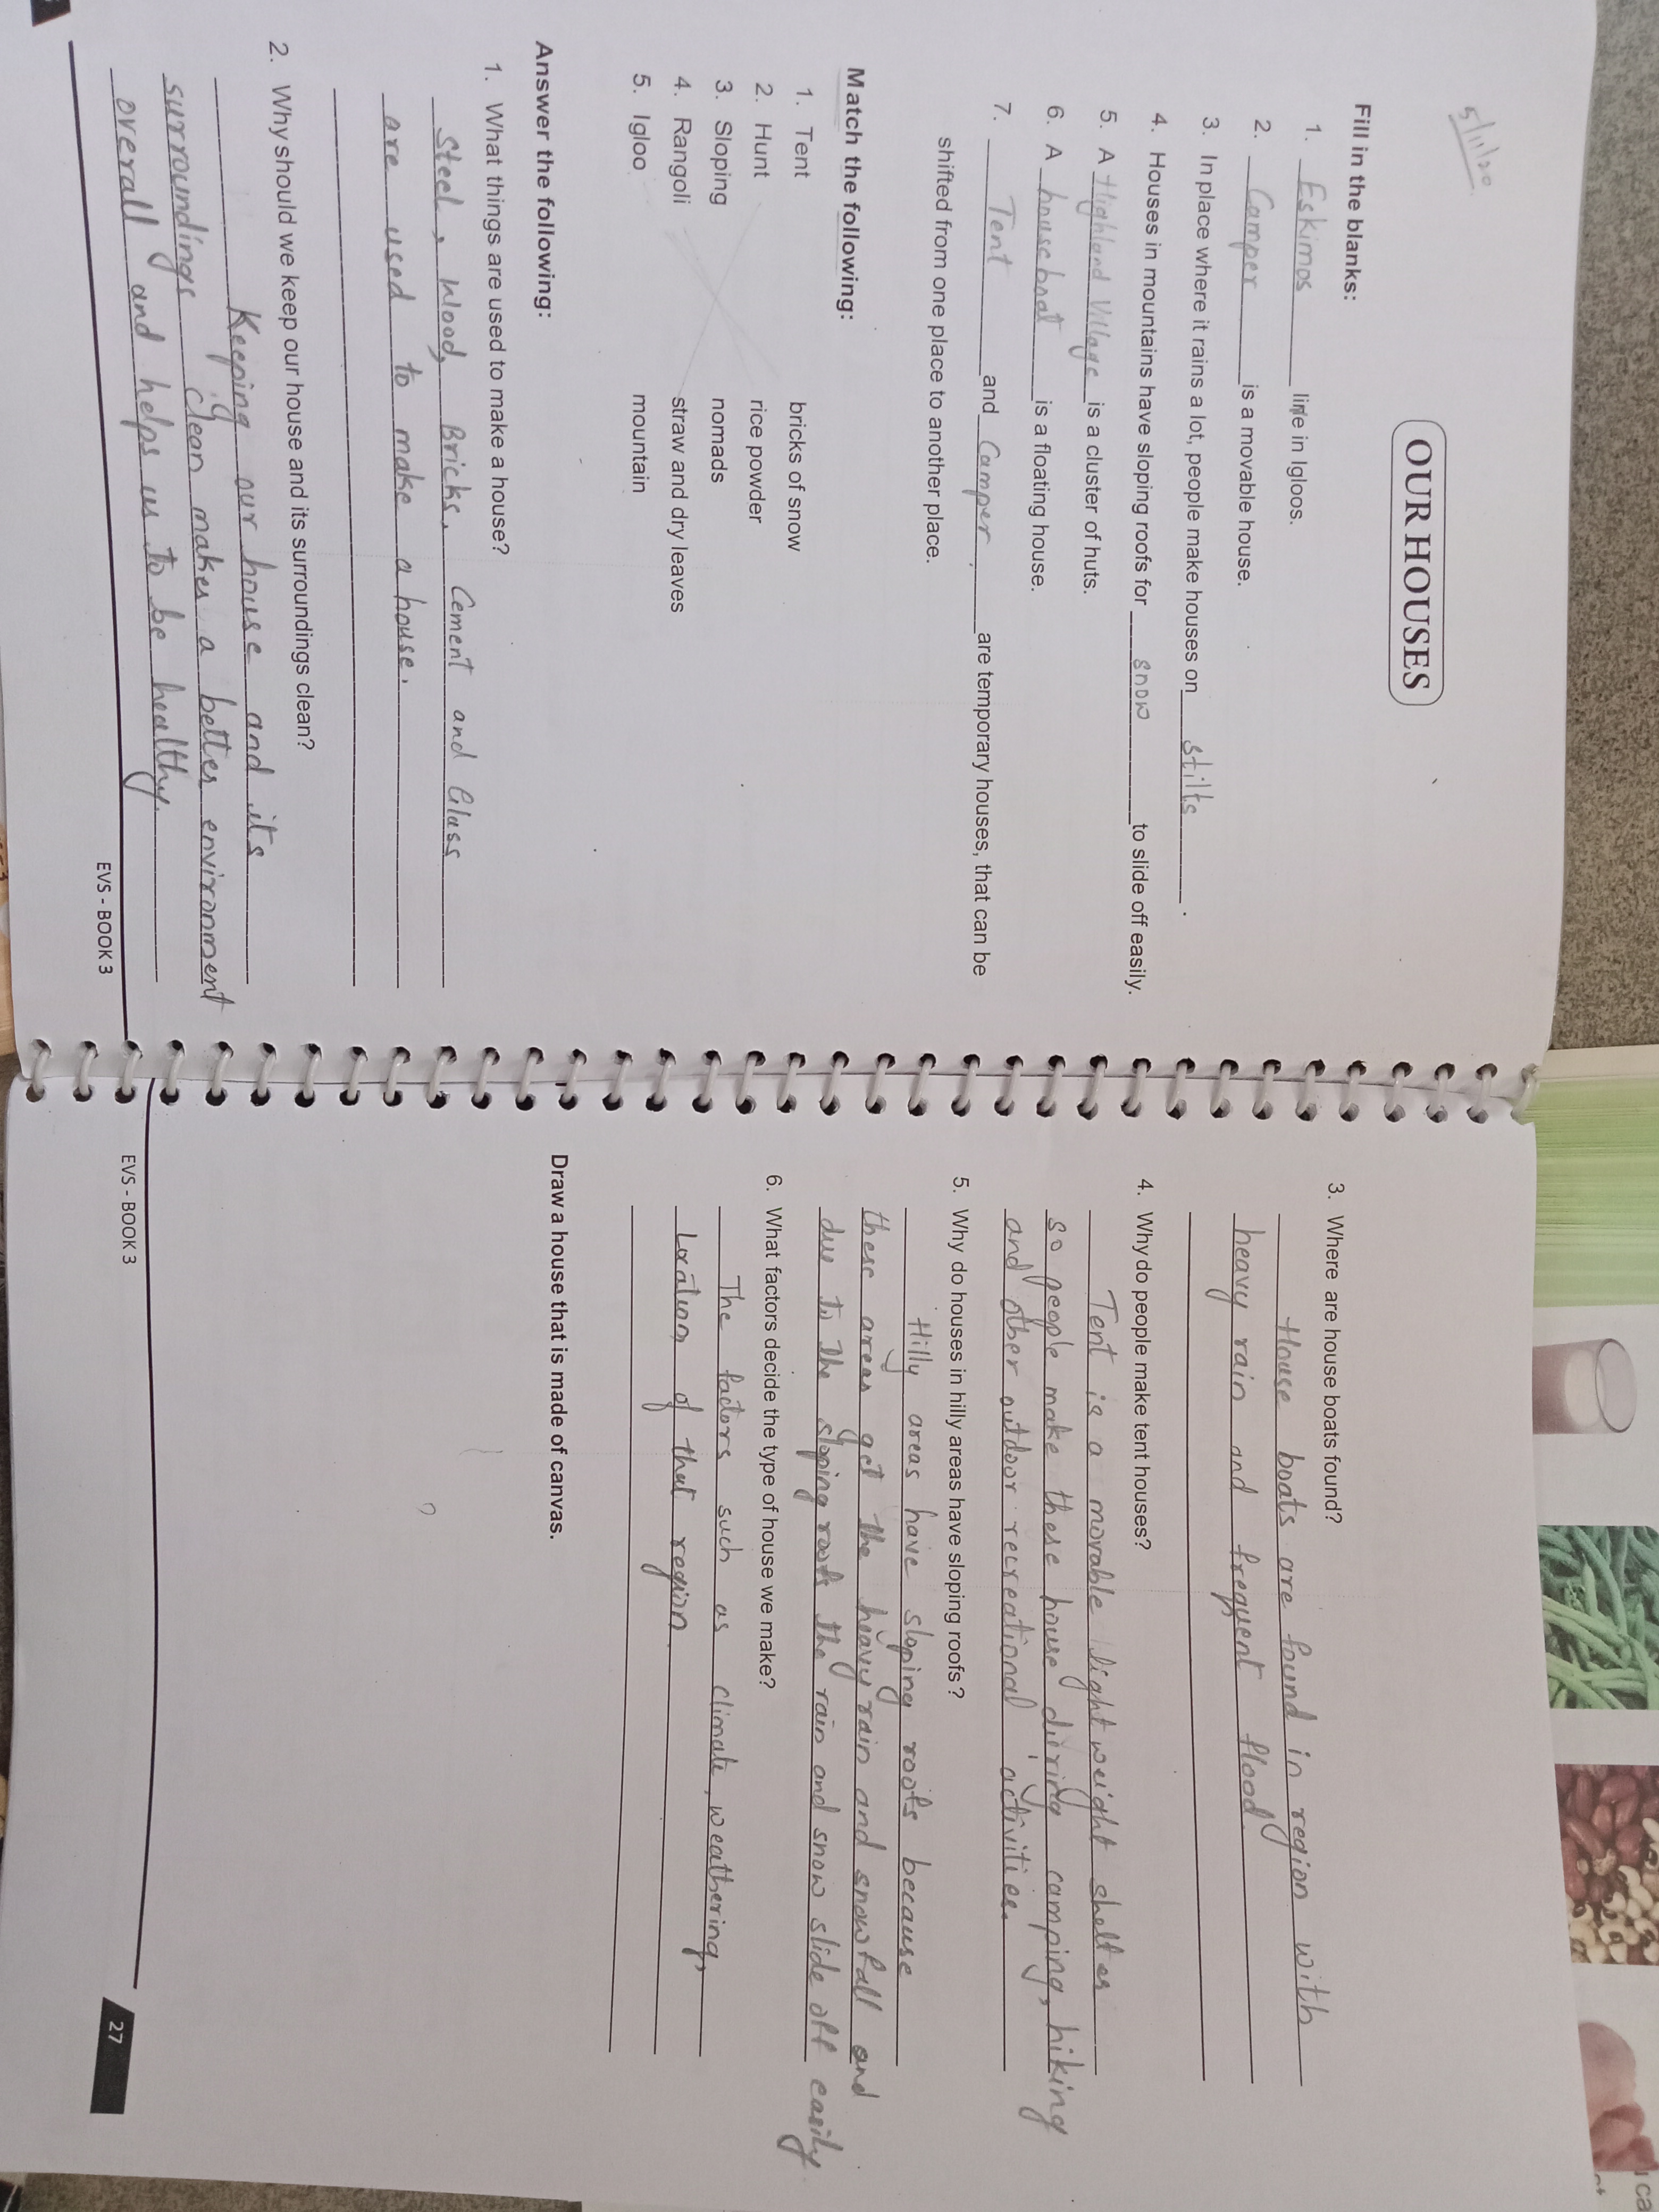 5/11/20
OUR HOUSES
Fill in the blanks:
1. Eskimos live in Igloos.
2. Camper is a movable house.
3. In place where it rains a lot, people make houses on stilts.
4. Houses in mountains have sloping roofs for snow to slide off easily.
5. A Highland Village is a cluster of huts.
6. A houseboat is a floating house.
7. Tent and Camper are temporary houses, that can be
shifted from one place to another place.
Match the following:
1. Tent bricks of snow
2. Hunt rice powder
3. Sloping nomads
4. Rangoli straw and dry leaves
5. Igloo mountain
Answer the following:
1. What things are used to make a house?
Steel, Wood, Bricks, Cement and Glass
are used to make a house.
2. Why should we keep our house and its surroundings clean?
Keeping our house and it's
surroundings clean makes a better environment
overall and helps us to be healthy.
EVS - BOOK 3
3. Where are house boats found?
House boats are found in region with
heavy rain and frequent flood.
4. Why do people make tent houses?
Tent is a movable light weight shelter
so people make these house during camping, hiking
and other outdoor recreational activities.
5. Why do houses in hilly areas have sloping roofs?
Hilly areas have sloping roofs because
these areas get the heavy rain and snowfall and
due to the sloping roofs the rain and snow slide off easily.
6. What factors decide the type of house we make?
The factors such as climate, weathering,
Location of that region.
Draw a house that is made of canvas.
EVS - BOOK 3
27